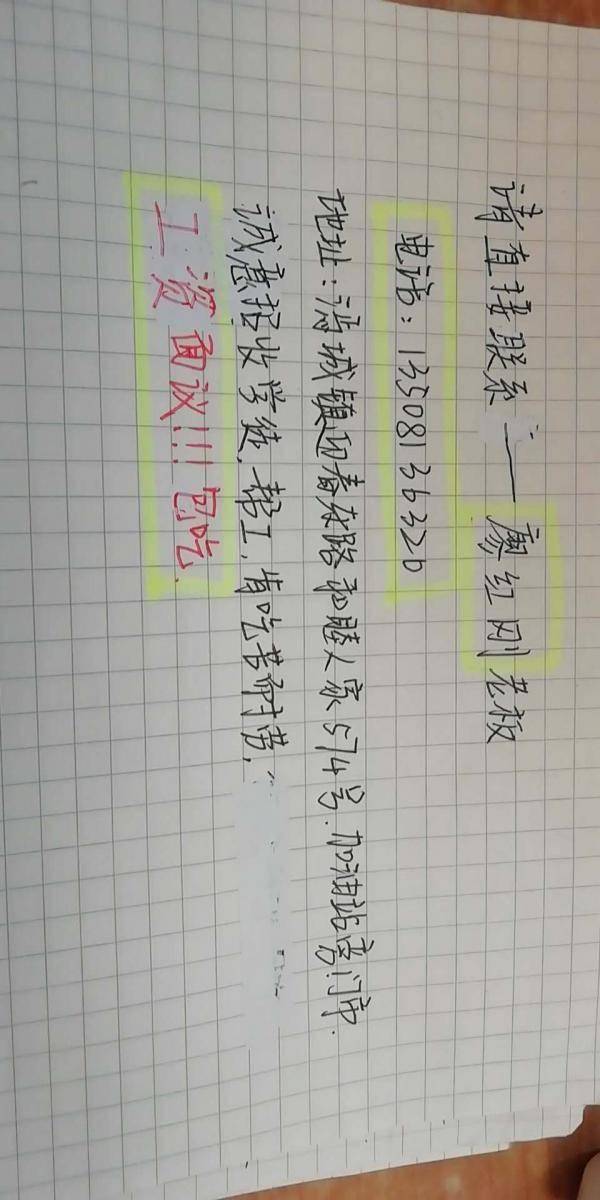 请直接联系——廖红刚老板
电话：13508136320
地址：浩城镇迎春东路和睦人家574号.加油站旁门市.
诚意招收学徒.帮工.肯吃苦耐劳,
工资面议!!!包吃.